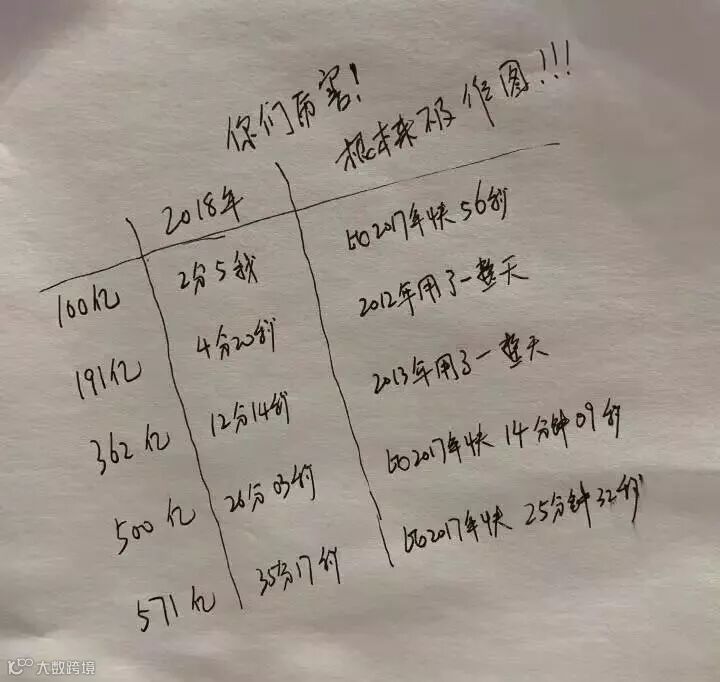 你们厉害!
根本来不及作图!!!
2018年
100亿 2分5秒 比2017年快56秒
191亿 4分20秒 2012年用了一整天
362亿 12分14秒 2013年用了一整天
500亿 26分03秒 比2017年快14分钟09秒
571亿 35分17秒 比2017年快25分钟32秒
K100 大数跨境